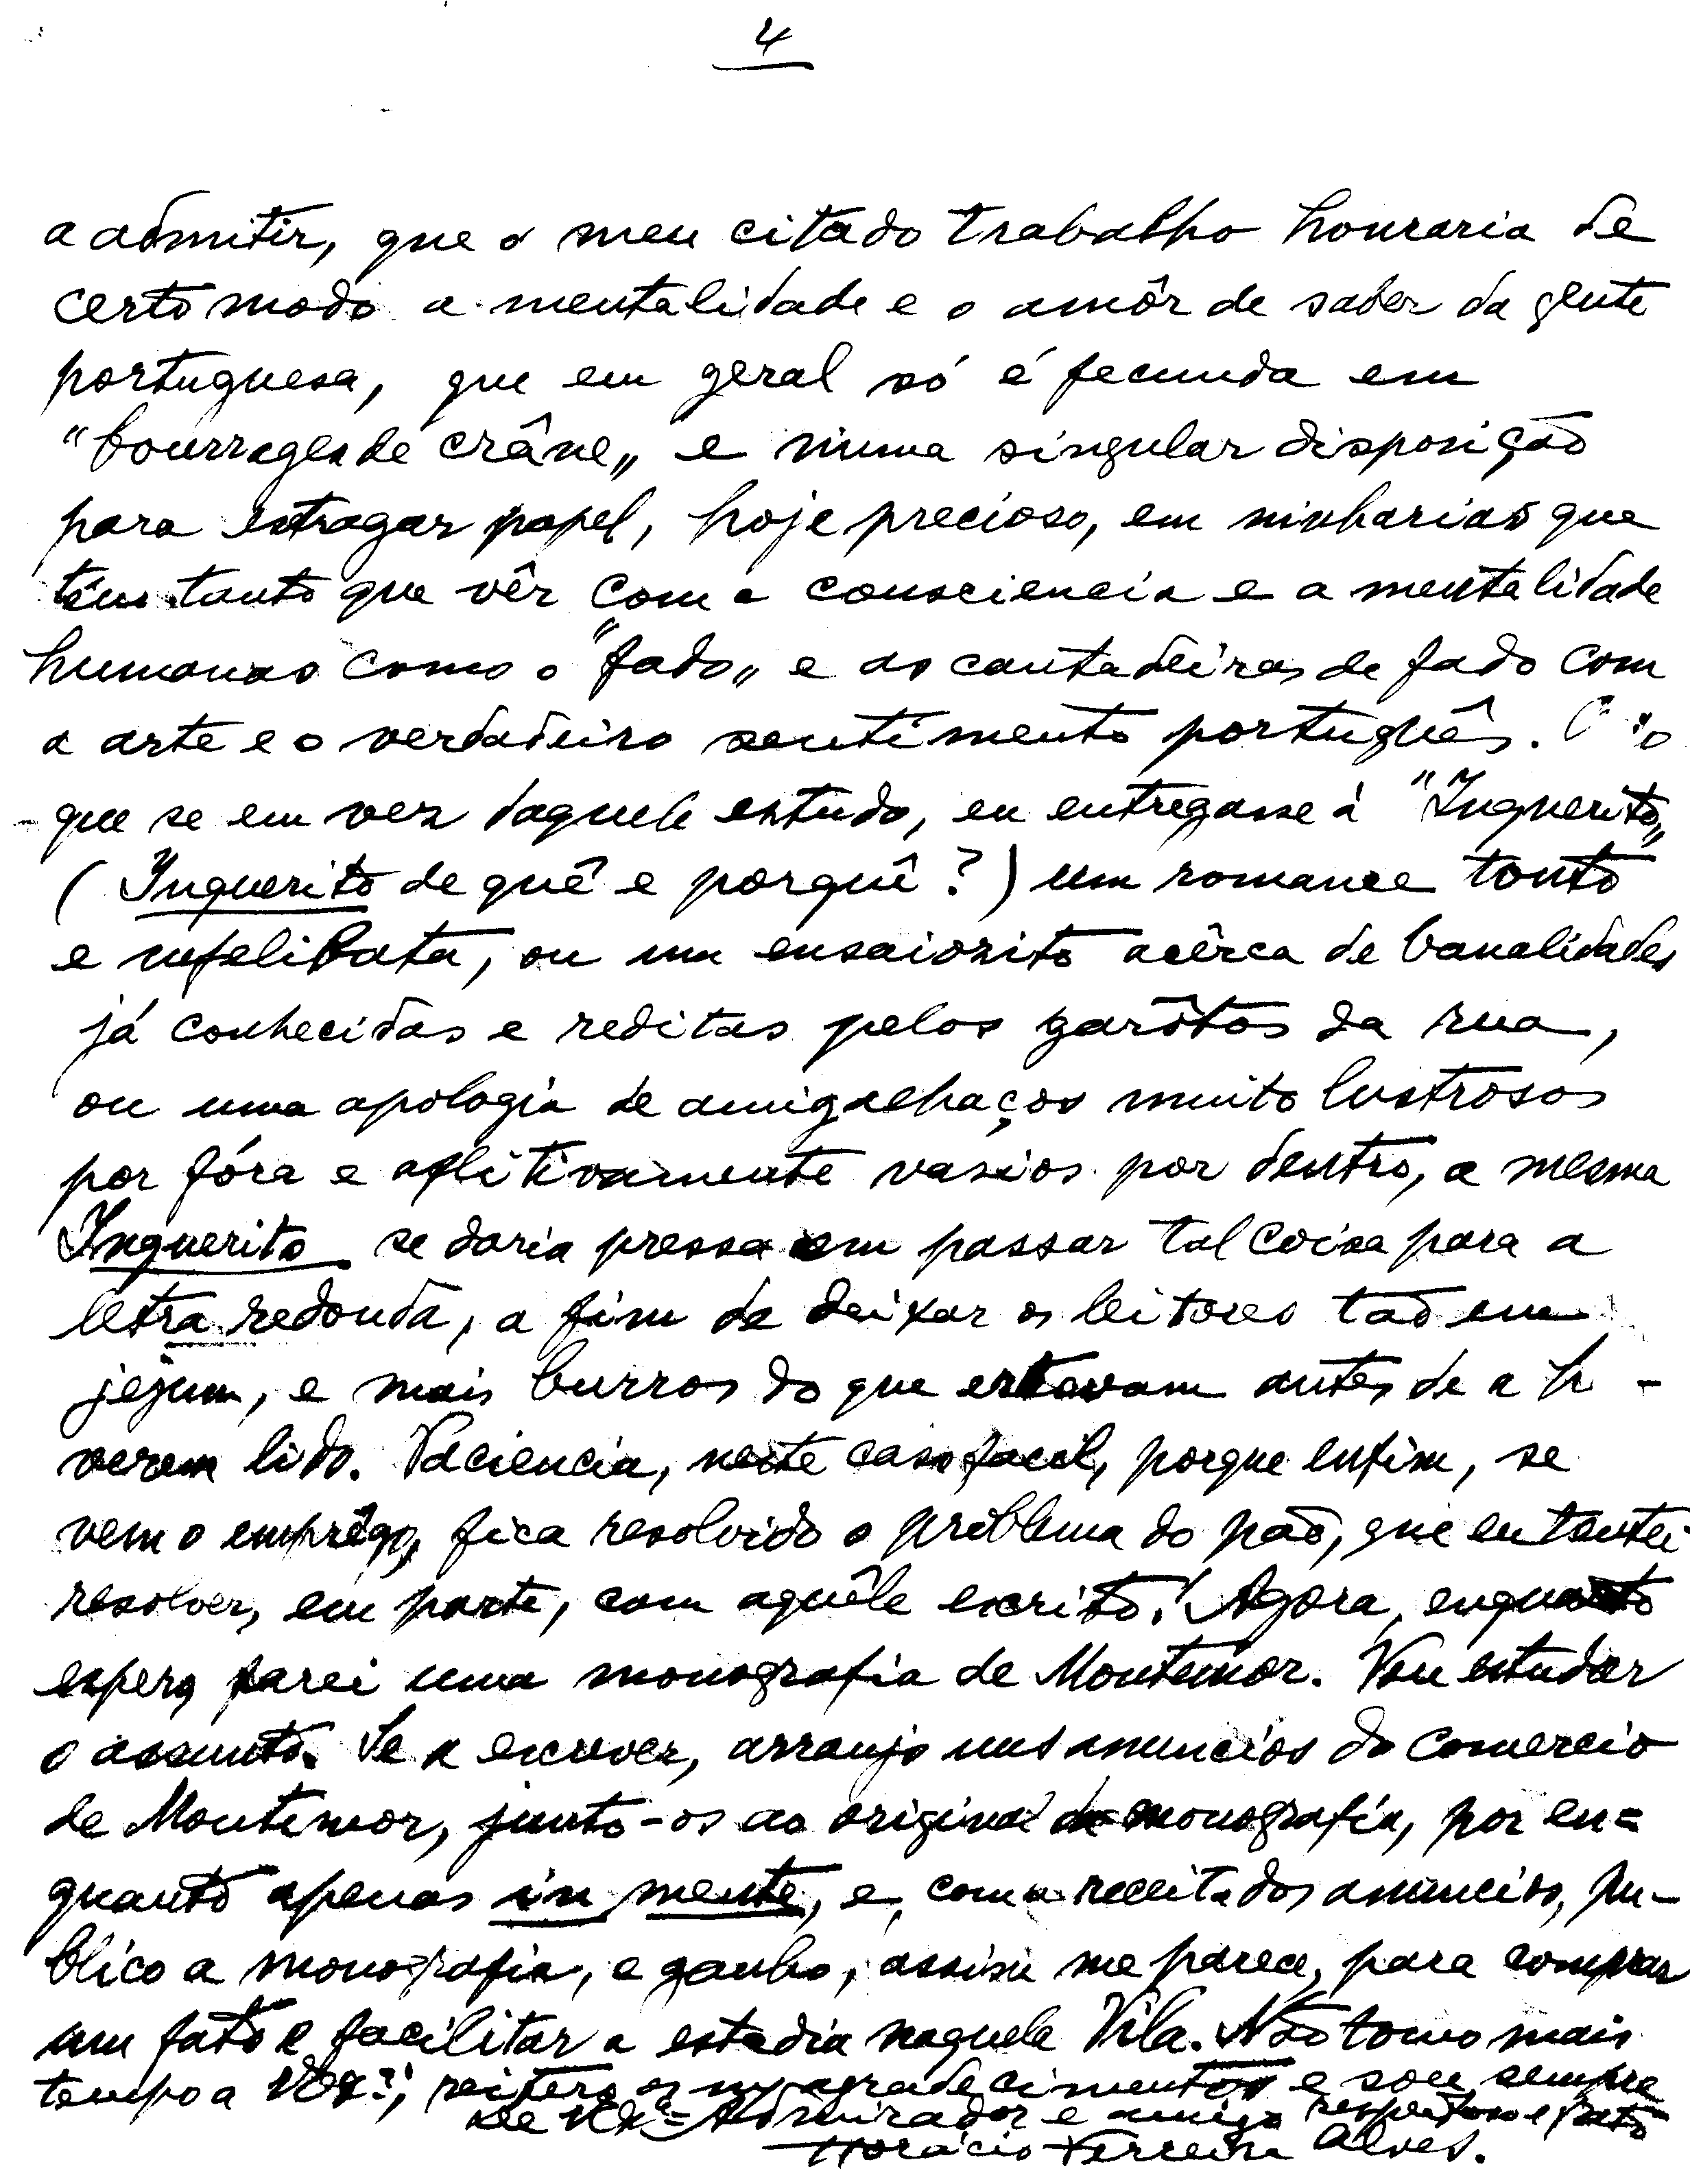 4
a admitir, que o meu citado trabalho honraria de
certo modo a mentalidade e o amôr de saber da gente
portuguesa, que em geral só é fecunda em
"bourrages de crâne„ e numa singular disposição
para estragar papel, hoje precioso, em ninharias que
têm tanto que vêr com a consciencia e a mentalidade
humanas como o "fado„ e as cantadeiras de fado com
a arte e o verdadeiro sentimento português.
que se em vez daquele estudo, eu entregasse á "Inquerito„
(Inquerito de quê e porquê?) um romance tonto
e nefelibata, ou um ensaiozito acêrca de banalidades
já conhecidas e reditas pelos garôtos da rua,
ou uma apologia de amigalhaços muito lustrosos
por fóra e aflitivamente vasios por dentro, a mesma
Inquerito se daria pressa em passar tal coisa para a
letra redonda, a fim de deixar os leitores tão em
jejum, e mais burros do que estavam antes de a h -
verem lido. Paciencia, neste caso facil, porque enfim, se
vem o emprêgo, fica resolvido o problema do pão, que eu tentei
resolver, em parte, com aquêle escrito! Agora, enquanto
espero, farei uma monografia de Montemór. Vou estudar
o assunto. Se a escrever, arranjo uns anuncios do comercio
de Montemor, junto-os ao original da monografia, por en=
quanto apenas in mente, e, com a receita dos anuncios, pu-
blico a monografia, e ganho, assim me parece, para comprar
um fato e facilitar a estadia naquela Vila. Não tomo mais
tempo a V. Ex.ª; reitero os agradecimentos e sou sempre
de V. Ex.ª Admirador e amigo respeitoso e grato
Horácio Ferreira Alves.